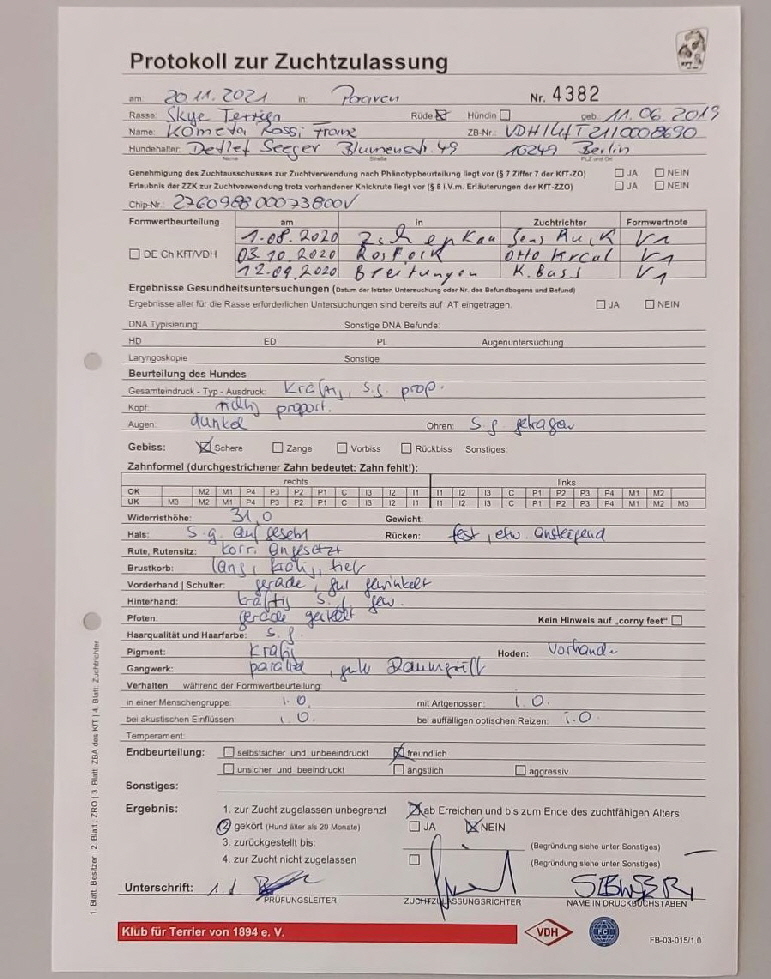 Protokoll zur Zuchtzulassung
am 20.11.2021 in: Nr. 4382
Rasse: Skye Terrier Rüde Hündin geb. 11.06.2019
Name: Kometa Rossi Franz ZB-Nr.: VDH/KfT 2110008690
Hundehalter: Detlef Seeger Blumenstr. 49 10249 Berlin
Name Straße PLZ und Ort
Genehmigung des Zuchtausschusses zur Zuchtverwendung nach Phänotypbeurteilung liegt vor (§ 7 Ziffer 7 der KfT-ZO) JA NEIN
Erlaubnis der ZZK zur Zuchtverwendung trotz vorhandener Knickrute liegt vor (§ 6 i.V.m. Erläuterungen der KfT-ZZO) JA NEIN
Chip-Nr.: 276098800073800
Formwertbeurteilung am in Zuchtrichter Formwertnote
1.08.2020 V1
DE Ch KfT/VDH 03.10.2020 Rostock Otto V1
12.09.2020 Breitungen K. Bass V1
Ergebnisse Gesundheitsuntersuchungen (Datum der letzten Untersuchung oder Nr. des Befundbogens und Befund)
Ergebnisse aller für die Rasse erforderlichen Untersuchungen sind bereits auf AT eingetragen. JA NEIN
DNA Typisierung: Sonstige DNA Befunde:
HD ED PL Augenuntersuchung
Laryngoskopie Sonstige
Beurteilung des Hundes
Gesamteindruck - Typ - Ausdruck: s.g. prop.
Kopf: proport.
Augen: dunkel Ohren: s.g. getragen
Gebiss: Schere Zange Vorbiss Rückbiss Sonstiges:
Zahnformel (durchgestrichener Zahn bedeutet: Zahn fehlt!):
rechts links
OK M2 M1 P4 P3 P2 P1 C I3 I2 I1 I1 I2 I3 C P1 P2 P3 P4 M1 M2
UK M3 M2 M1 P4 P3 P2 P1 C I3 I2 I1 I1 I2 I3 C P1 P2 P3 P4 M1 M2 M3
Widerristhöhe: 31,0 Gewicht:
Hals: s.g. aufgesetzt Rücken: fest, etw. ansteigend
Rute, Rutensitz: korr. angesetzt
Brustkorb: lang, kräftig, tief
Vorderhand | Schulter: gerade, gut gewinkelt
Hinterhand: kräftig s.g. gew.
Pfoten: gerade gestellt Kein Hinweis auf „corny feet“
Haarqualität und Haarfarbe: s.g
Pigment: kräftig Hoden: vorhanden
Gangwerk: parallel, guter Raumgriff
Verhalten während der Formwertbeurteilung:
in einer Menschengruppe: i.O. mit Artgenossen: i.O.
bei akustischen Einflüssen i.O. bei auffälligen optischen Reizen: i.O.
Temperament:
Endbeurteilung: selbstsicher und unbeeindruckt freundlich
unsicher und beeindruckt ängstlich aggressiv
Sonstiges:
Ergebnis: 1. zur Zucht zugelassen unbegrenzt ab Erreichen und bis zum Ende des zuchtfähigen Alters
2 gekört (Hund älter als 28 Monate) JA NEIN
3. zurückgestellt bis: (Begründung siehe unter Sonstiges)
4. zur Zucht nicht zugelassen (Begründung siehe unter Sonstiges)
Unterschrift:
PRÜFUNGSLEITER ZUCHTZULASSUNGSRICHTER NAME IN DRUCKBUCHSTABEN
Klub für Terrier von 1894 e. V. VDH FCI
FB-03-015/1.0
1. Blatt: Besitzer 2. Blatt: ZRO | 3. Blatt: ZBA des KfT | 4. Blatt: Zuchtrichter